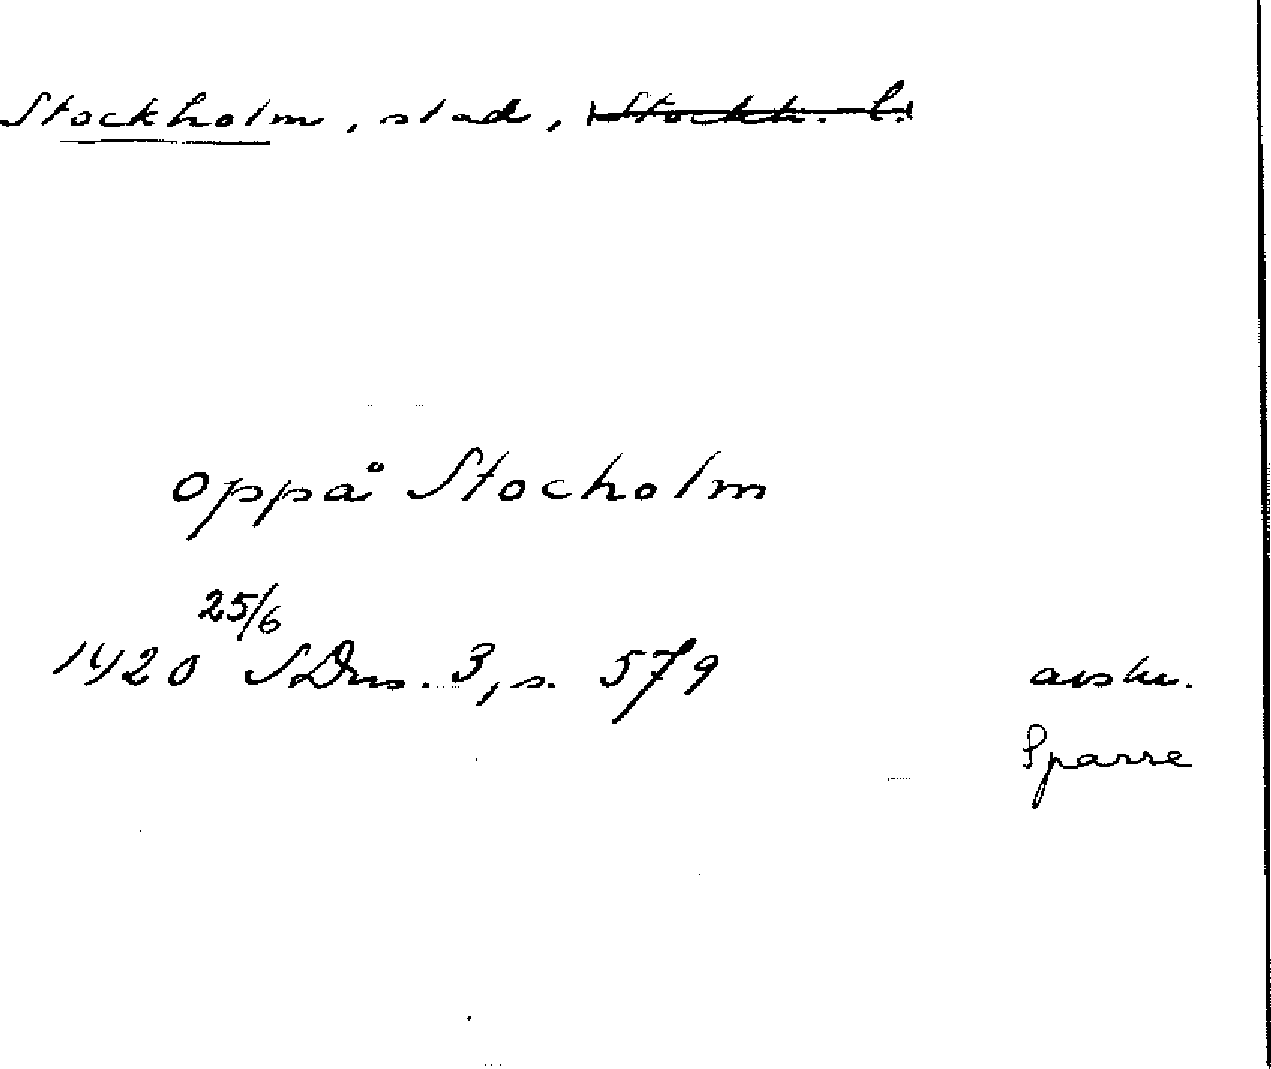 Stockholm, stad, Stockh. l.
oppå Stocholm
1420 25/6 SDns. 3, s. 579 avskr.
Sparre